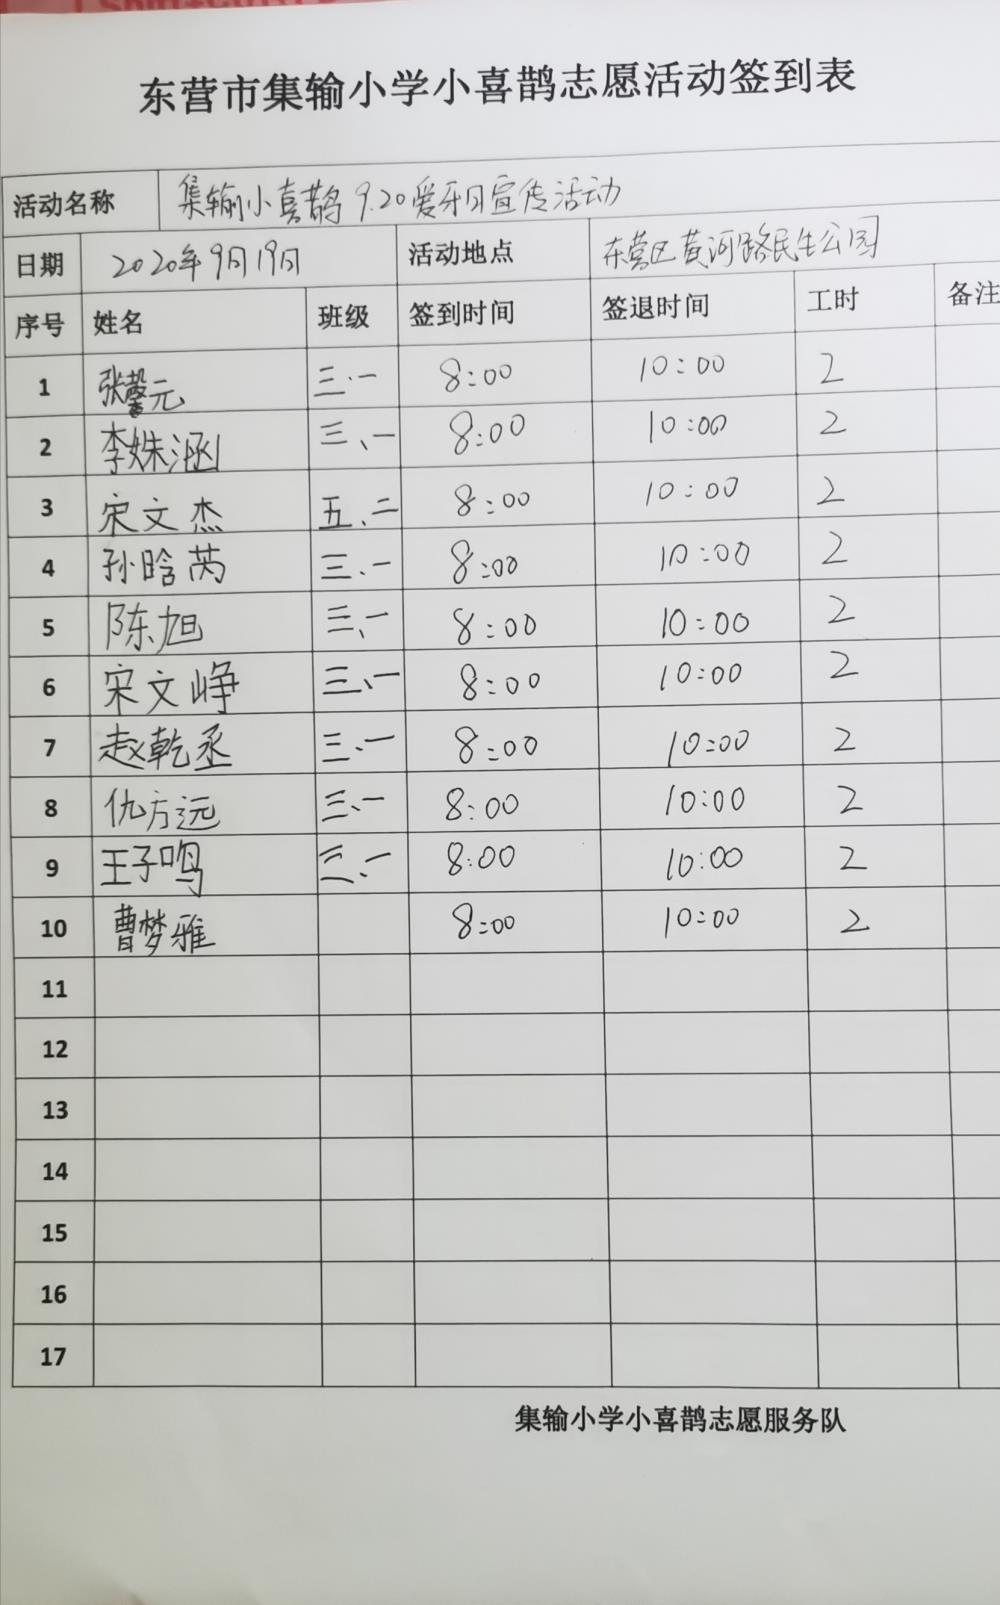 东营市集输小学小喜鹊志愿活动签到表
活动名称 集输小喜鹊9.20爱牙日宣传活动
日期 2020年9月19日 活动地点 东营区黄河路民生公园
序号 姓名 班级 签到时间 签退时间 工时 备注
1 张馨元 三.一 8:00 10:00 2
2 李姝涵 三、一 8:00 10:00 2
3 宋文杰 五、二 8:00 10:00 2
4 孙晗芮 三.一 8:00 10:00 2
5 陈旭 三、一 8:00 10:00 2
6 宋文峥 三、一 8:00 10:00 2
7 赵乾丞 三、一 8:00 10:00 2
8 仇方远 三、一 8:00 10:00 2
9 王子鸣 三、一 8:00 10:00 2
10 曹梦雅 8:00 10:00 2
11
12
13
14
15
16
17
集输小学小喜鹊志愿服务队